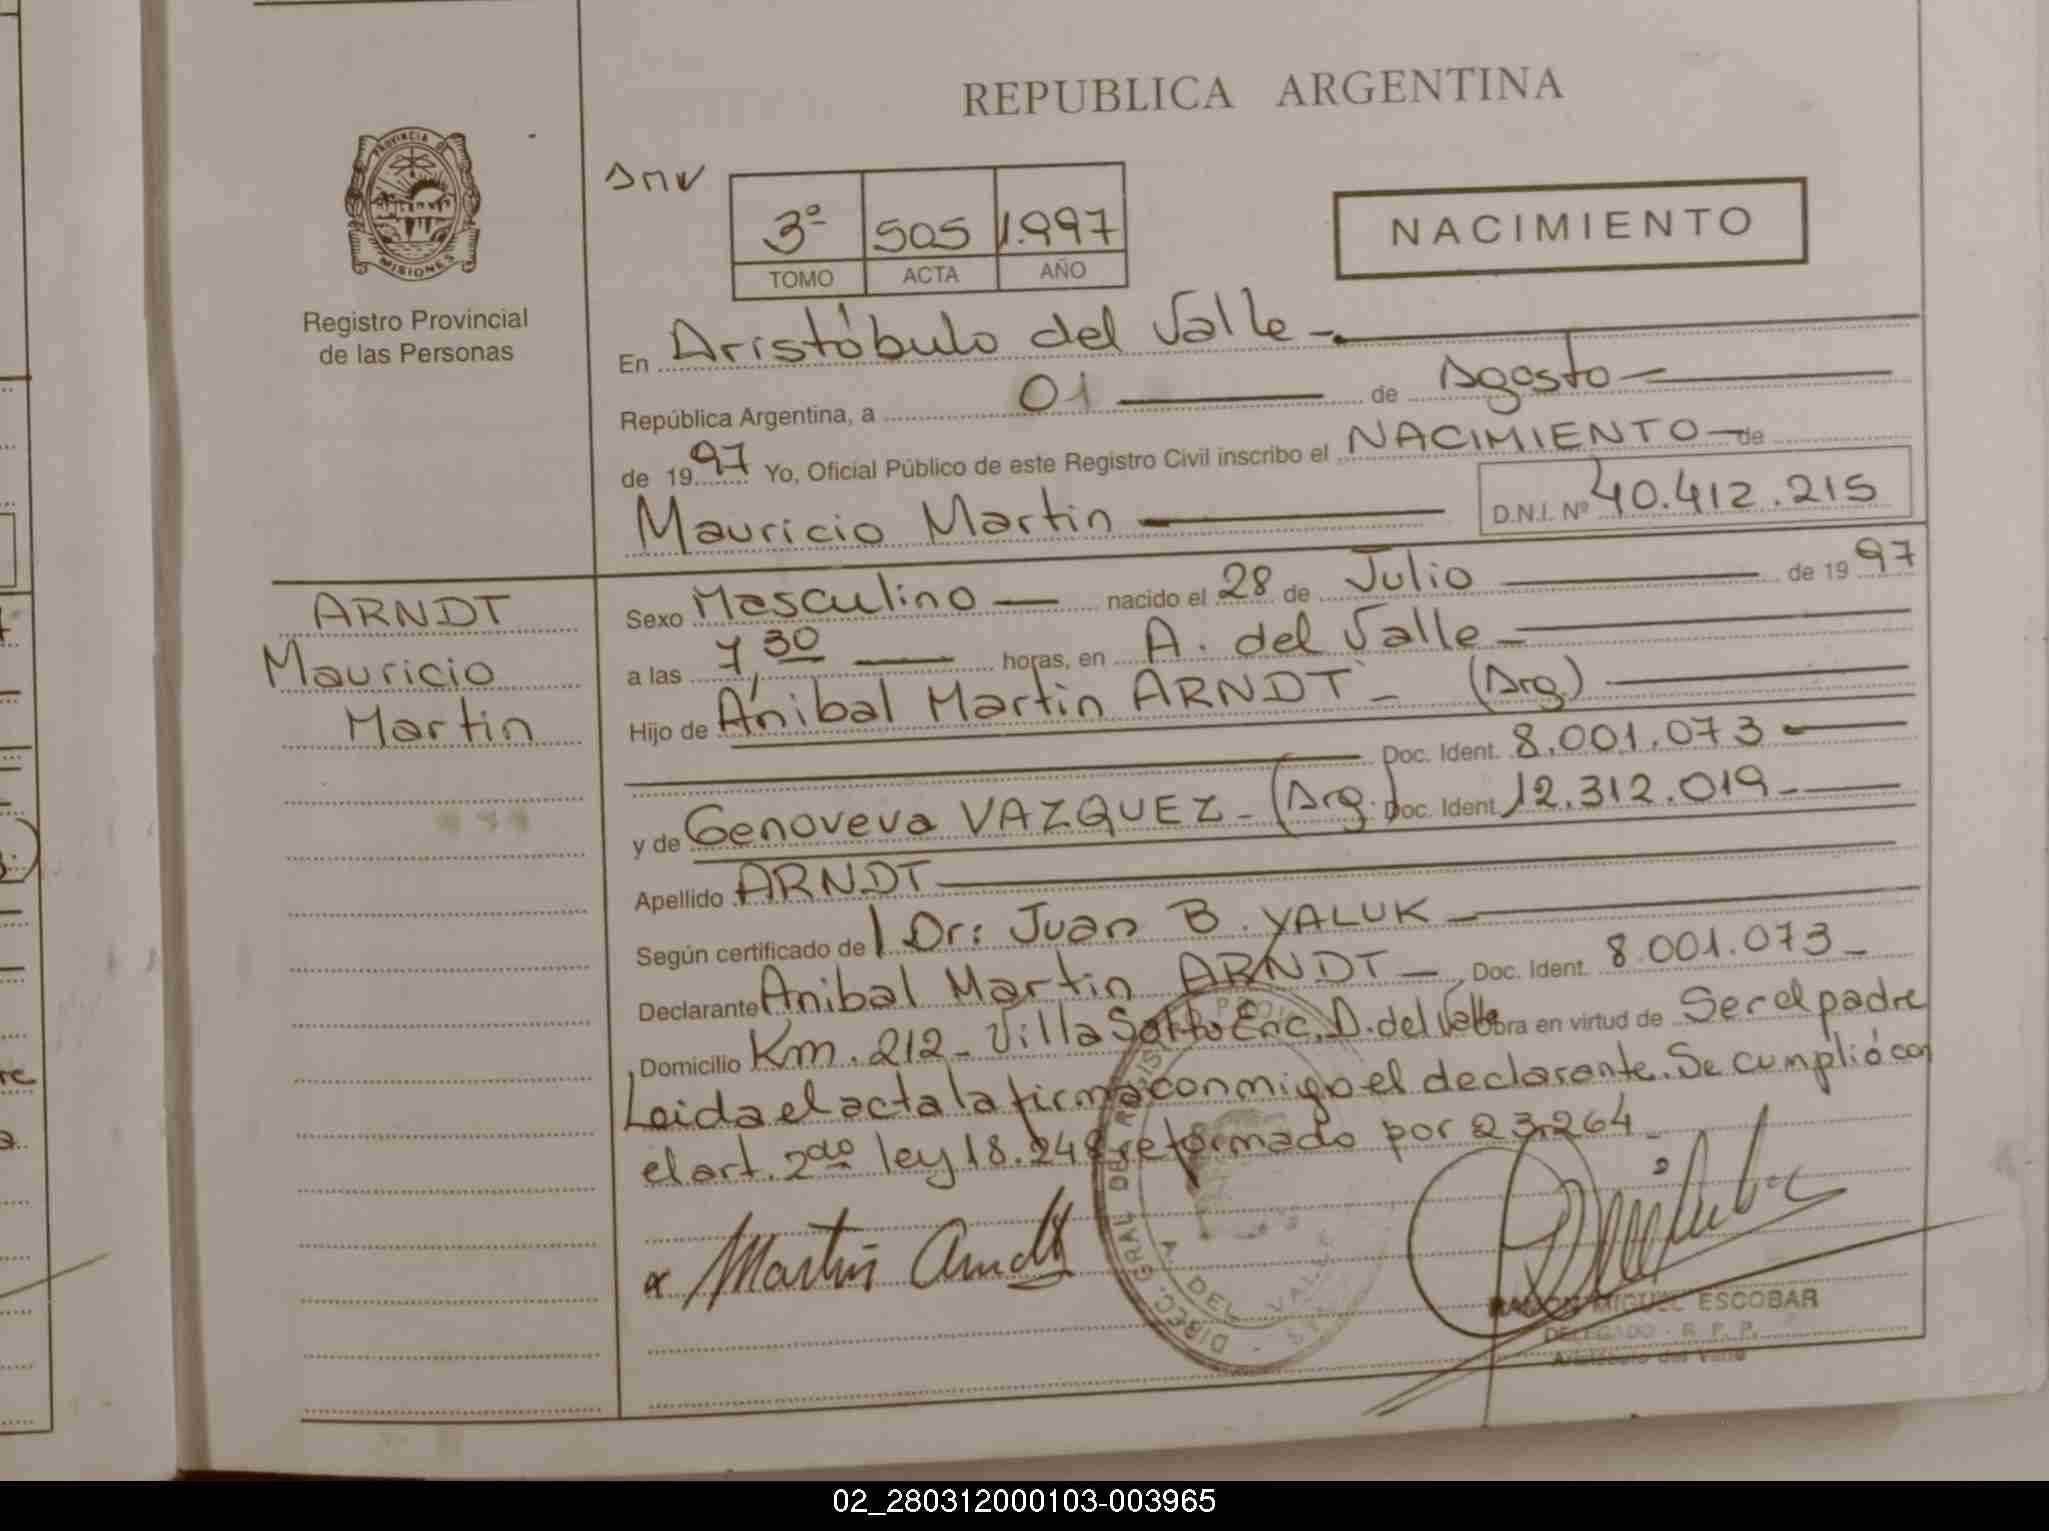 REPUBLICA ARGENTINA
PROVINCIA DE
MISIONES
Registro Provincial
de las Personas
3º 505 1.997
TOMO ACTA AÑO
NACIMIENTO
En Aristóbulo del Valle
República Argentina, a 01 de Agosto
de 1997 Yo, Oficial Público de este Registro Civil inscribo el NACIMIENTO de
Mauricio Martin D.N.I. Nº 40.412.215
ARNDT
Mauricio
Martin
Sexo Masculino nacido el 28 de Julio de 1997
a las 7,30 horas, en A. del Valle
Hijo de Aníbal Martin ARNDT - (Arg.)
Doc. Ident. 8.001.073
y de Genoveva VAZQUEZ - (Arg.) Doc. Ident. 12.312.019
Apellido ARNDT
Según certificado de Dr: Juan B. YALUK
Declarante Anibal Martin ARNDT Doc. Ident. 8.001.073
Domicilio Km. 212 - Villa Salto Enc. A. del Valle Obra en virtud de Ser el padre
Leida el acta la firma conmigo el declarante. Se cumplió con
el art. 2do ley 18.248 reformado por 23.264
Martin Arndt
DIREC. GRAL DE REGIS PROV
A DEL VALLE
RAMON MIGUEL ESCOBAR
DELEGADO - R. P. P.
Aristóbulo del Valle
02_280312000103-003965